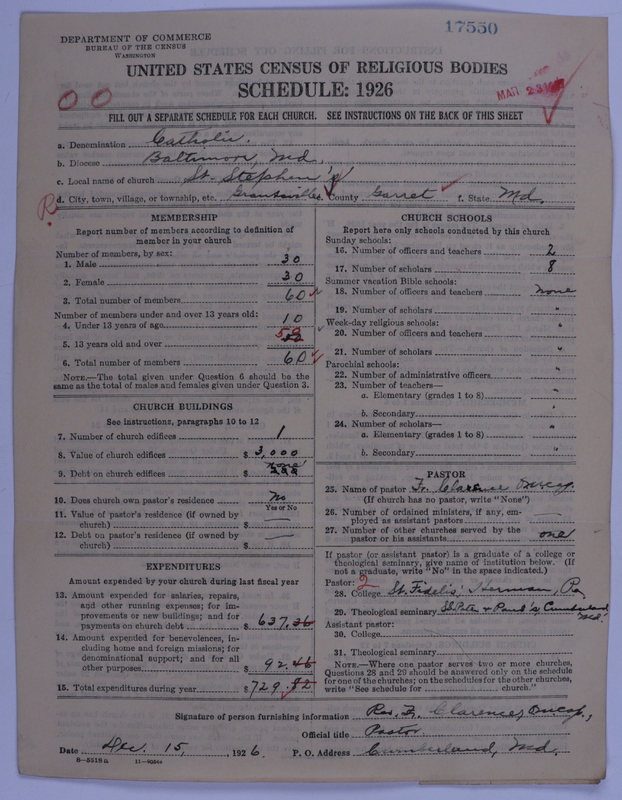 17550
DEPARTMENT OF COMMERCE
BUREAU OF THE CENSUS
WASHINGTON
UNITED STATES CENSUS OF RELIGIOUS BODIES
SCHEDULE: 1926
MAR 23
FILL OUT A SEPARATE SCHEDULE FOR EACH CHURCH. SEE INSTRUCTIONS ON THE BACK OF THIS SHEET
a. Denomination Catholic.
b. Diocese Baltimore, Md.
c. Local name of church St. Stephen's
d. City, town, village, or township, etc. Grantsville e. County Garret f. State Md.
MEMBERSHIP
Report number of members according to definition of
member in your church
Number of members, by sex:
1. Male 30
2. Female 30
3. Total number of members 60
Number of members under and over 13 years old:
4. Under 13 years of age 10
5. 13 years old and over 50
6. Total number of members 60
NOTE.—The total given under Question 6 should be the
same as the total of males and females given under Question 3.
CHURCH BUILDINGS
See instructions, paragraphs 10 to 12
7. Number of church edifices 1
8. Value of church edifices $ 3,000
9. Debt on church edifices $ none
10. Does church own pastor's residence No
Yes or No
11. Value of pastor's residence (if owned by
church) $ —
12. Debt on pastor's residence (if owned by
church) $ —
EXPENDITURES
Amount expended by your church during last fiscal year
13. Amount expended for salaries, repairs,
and other running expenses; for im-
provements or new buildings; and for
payments on church debt $ 637.36
14. Amount expended for benevolences, in-
cluding home and foreign missions; for
denominational support; and for all
other purposes $ 92.46
15. Total expenditures during year $ 729.82
CHURCH SCHOOLS
Report here only schools conducted by this church
Sunday schools:
16. Number of officers and teachers 2
17. Number of scholars 8
Summer vacation Bible schools:
18. Number of officers and teachers none
19. Number of scholars "
Week-day religious schools: "
20. Number of officers and teachers
21. Number of scholars "
Parochial schools:
22. Number of administrative officers "
23. Number of teachers—
a. Elementary (grades 1 to 8) "
b. Secondary "
24. Number of scholars—
a. Elementary (grades 1 to 8) "
b. Secondary "
PASTOR
25. Name of pastor Fr. Clarence
(If church has no pastor, write "None")
26. Number of ordained ministers, if any, em-
ployed as assistant pastors —
27. Number of other churches served by the
pastor or his assistants one
If pastor (or assistant pastor) is a graduate of a college or
theological seminary, give name of institution below. (If
not a graduate, write "No" in the space indicated.)
Pastor: 2
28. College St. Fidelis, Herman, Pa
29. Theological seminary SS. Peter & Paul's Cumberland
Md.
Assistant pastor:
30. College
31. Theological seminary
NOTE.—Where one pastor serves two or more churches,
Questions 28 and 29 should be answered only on the schedule
for one of the churches; on the schedules for the other churches,
write "See schedule for church."
Signature of person furnishing information Rev. Fr. Clarence,
Official title Pastor
Date Dec. 15, 1926. P. O. Address Cumberland, Md.
8—5518a 11—90244